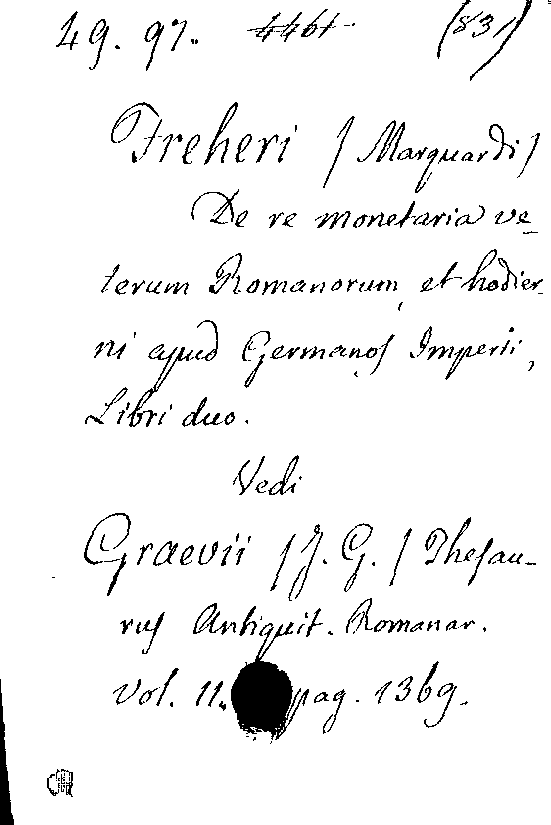 49. 97. 4461. (831)
Freheri / Marquardi /
De re monetaria ve-
terum Romanorum, et hodier-
ni apud Germanos Imperii,
Libri duo.
Vedi
Graevii / J. G. / Thesau-
rus Antiquit. Romanar.
Vol. 11. pag. 1369.